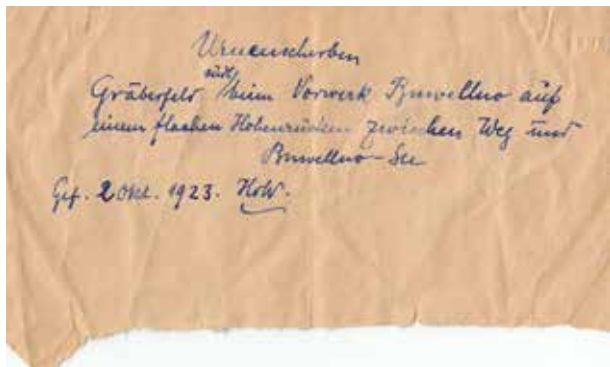 Urnenscherben
südl.
Gräberfeld beim Vorwerk Buwellno auf
einem flachen Höhenrücken zwischen Weg und
Buwellno-See
Gef. 2 Okt. 1923.